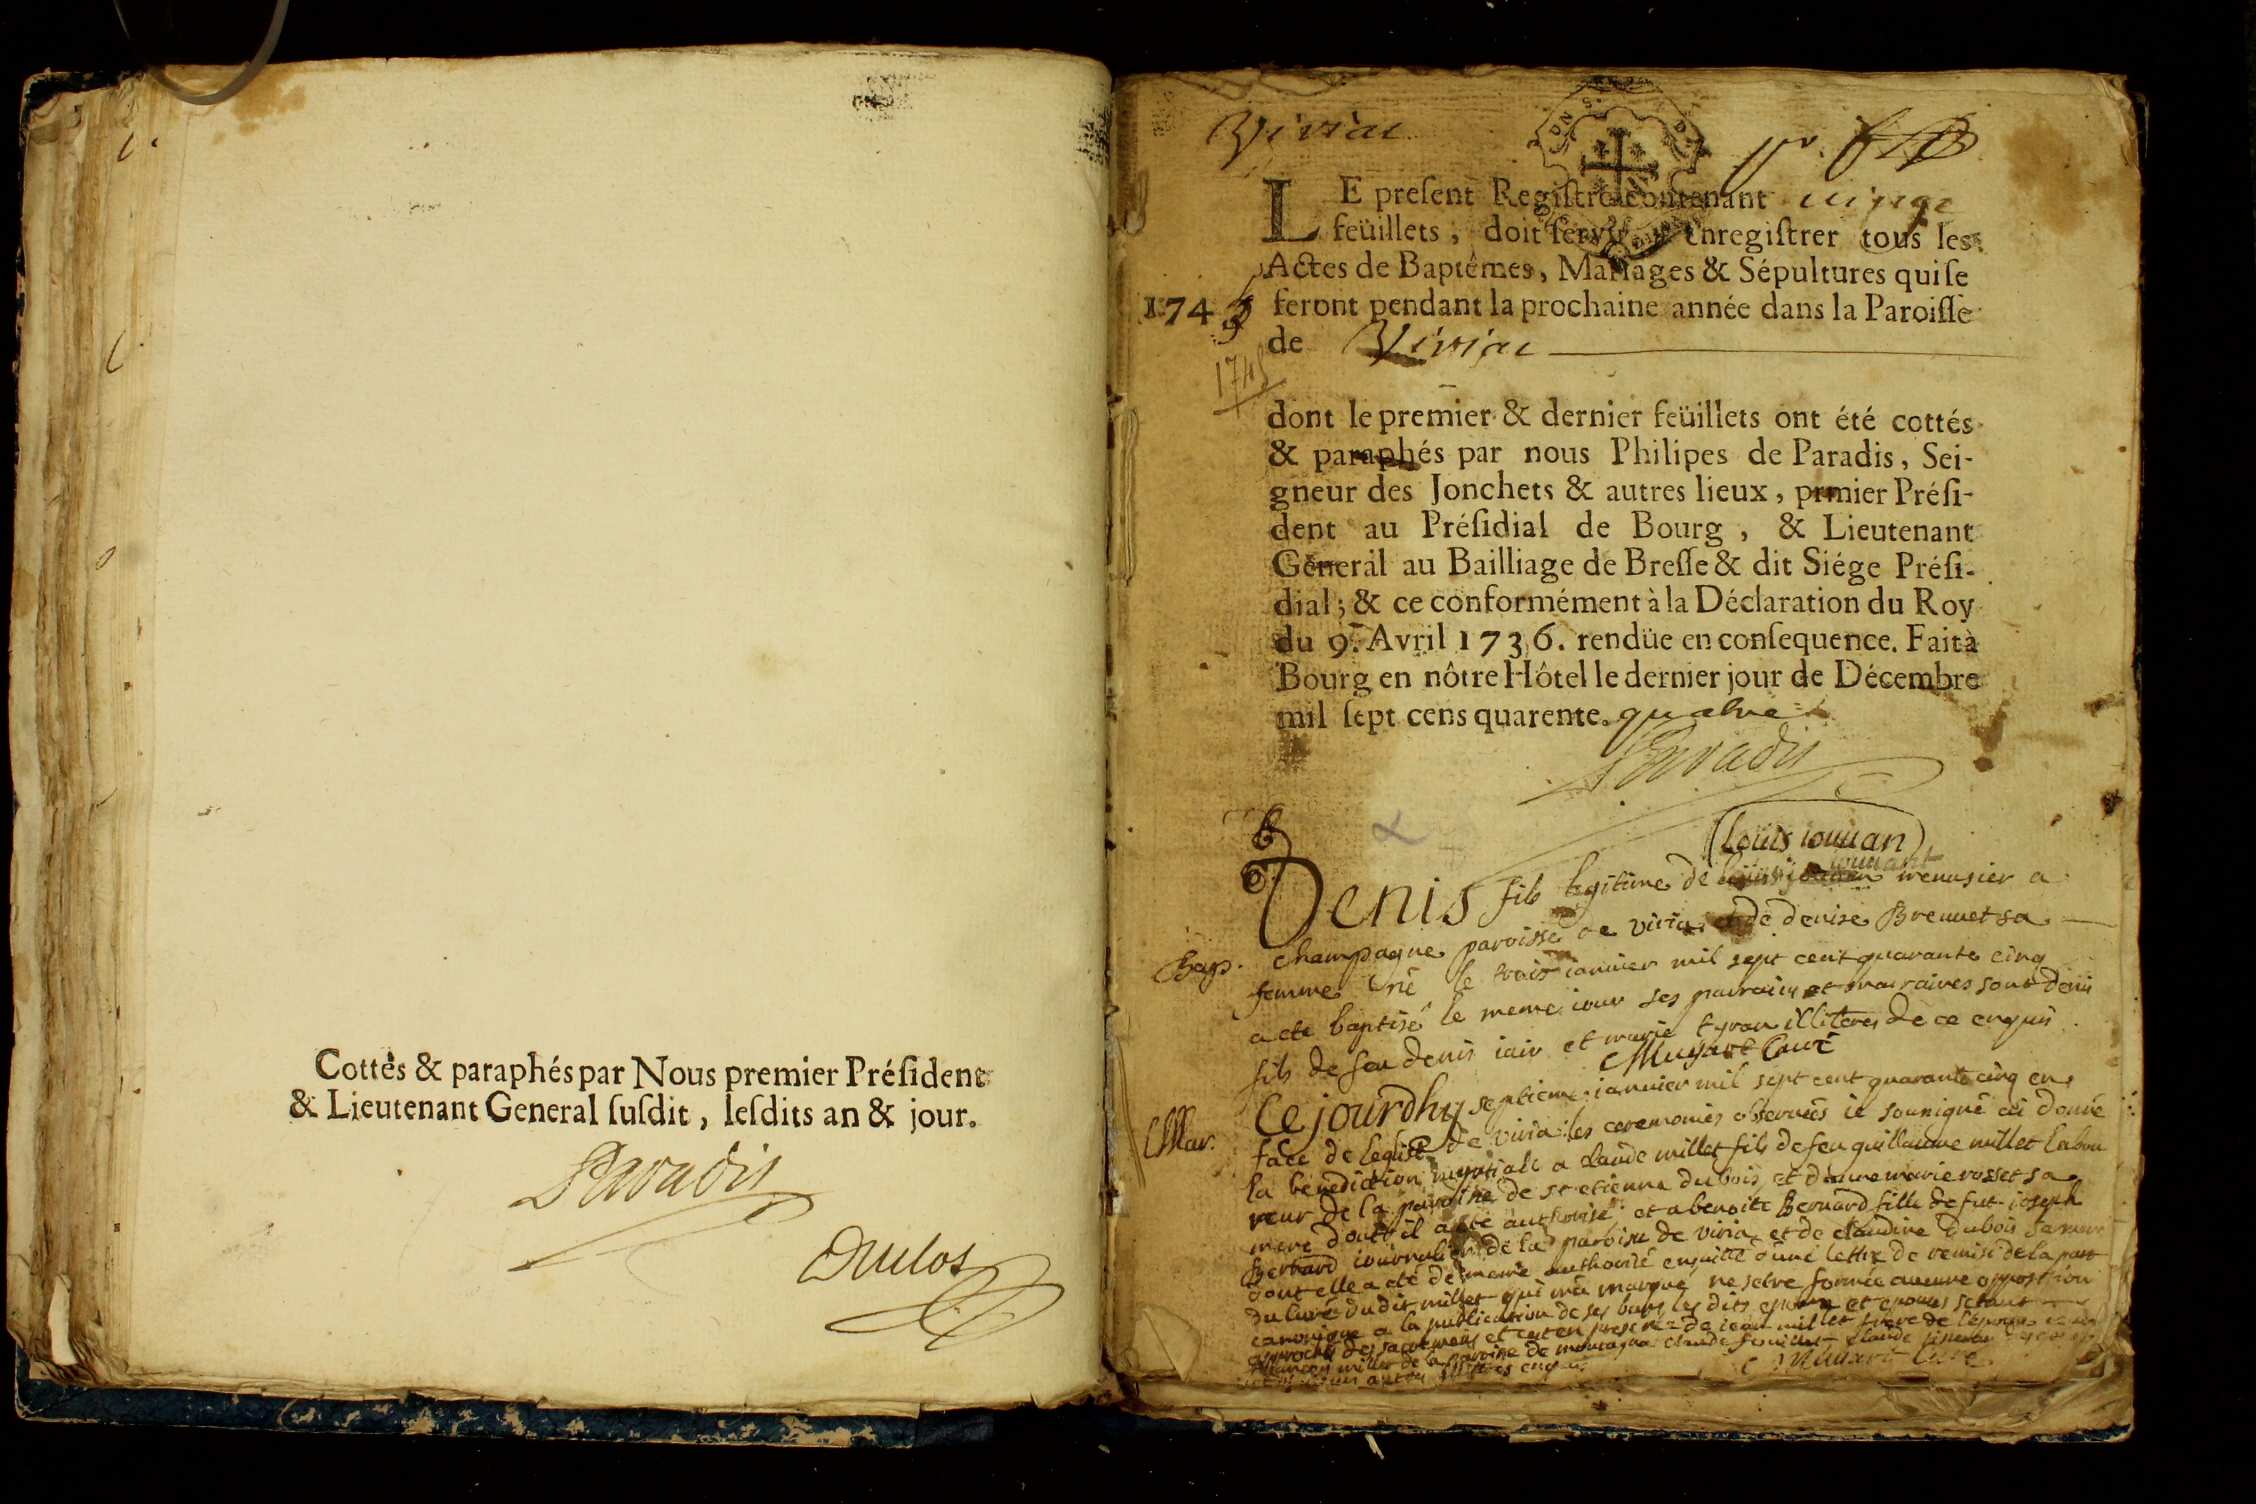 Cottés & paraphés par Nous premier Préſident
& Lieutenant General ſuſdit, leſdits an & jour.
Paradis
Dulos
Viriat
LE preſent Regiſtre contenant
feüillets, doit ſervir enregiſtrer tous les
Actes de Baptêmes, Mariages & Sépultures qui ſe
1745 feront pendant la prochaine année dans la Paroiſſe
de Viriat
1745
dont le premier & dernier feüillets ont été cottés
& paraphés par nous Philipes de Paradis, Sei-
gneur des Jonchets & autres lieux, prmier Préſi-
dent au Préſidial de Bourg, & Lieutenant
Général au Bailliage de Breſſe & dit Siége Préſi-
dial; & ce conformément à la Déclaration du Roy
du 9. Avril 1736. rendüe en conſequence. Fait à
Bourg en nôtre Hôtel le dernier jour de Décembre
mil ſept cens quarente. quatre
Paradis
(Loüis iouuan)
iouuant
Denis fils legitime de menusier a
champagne paroisse de viria et de denise Breuuet sa
Bap.
femme né le trois ianuier mil sept cent quarante cinq
a ete baptisé le meme iour ses parrains et maraines sont denis
fils de feu denis iair et marie tyran illiteres de ce enquis
Muyart Curé
Mar.
Ce jourdhuy septieme ianuier mil sept cent quarante cinq en
face de leglise de viria les ceremonies obseruées ie sousigné ai donné
la benediction nuptiale a claude millet fils de feu guillaume millet labou
reur de la paroisse de st etienne du bois et d marie rosset sa
mere dont il a été authorisé et a benoite Bernard fille de fut ioseph
Bernard iournalier de la paroisse de viria et de claudine dubois sa mere
dont elle a été de meme authorisé ensuitte d'une lettre de remise de la part
du curé dudit millet qui m'a marqué ne setre formée aucune opposition
canonique a la publication de ses bans les dits epoux et epouses setant
approchés des sacremens et cet en presence de iean millet frere de l'epoux
millet de la paroisse de claude feuillet claude
Muyart Curé